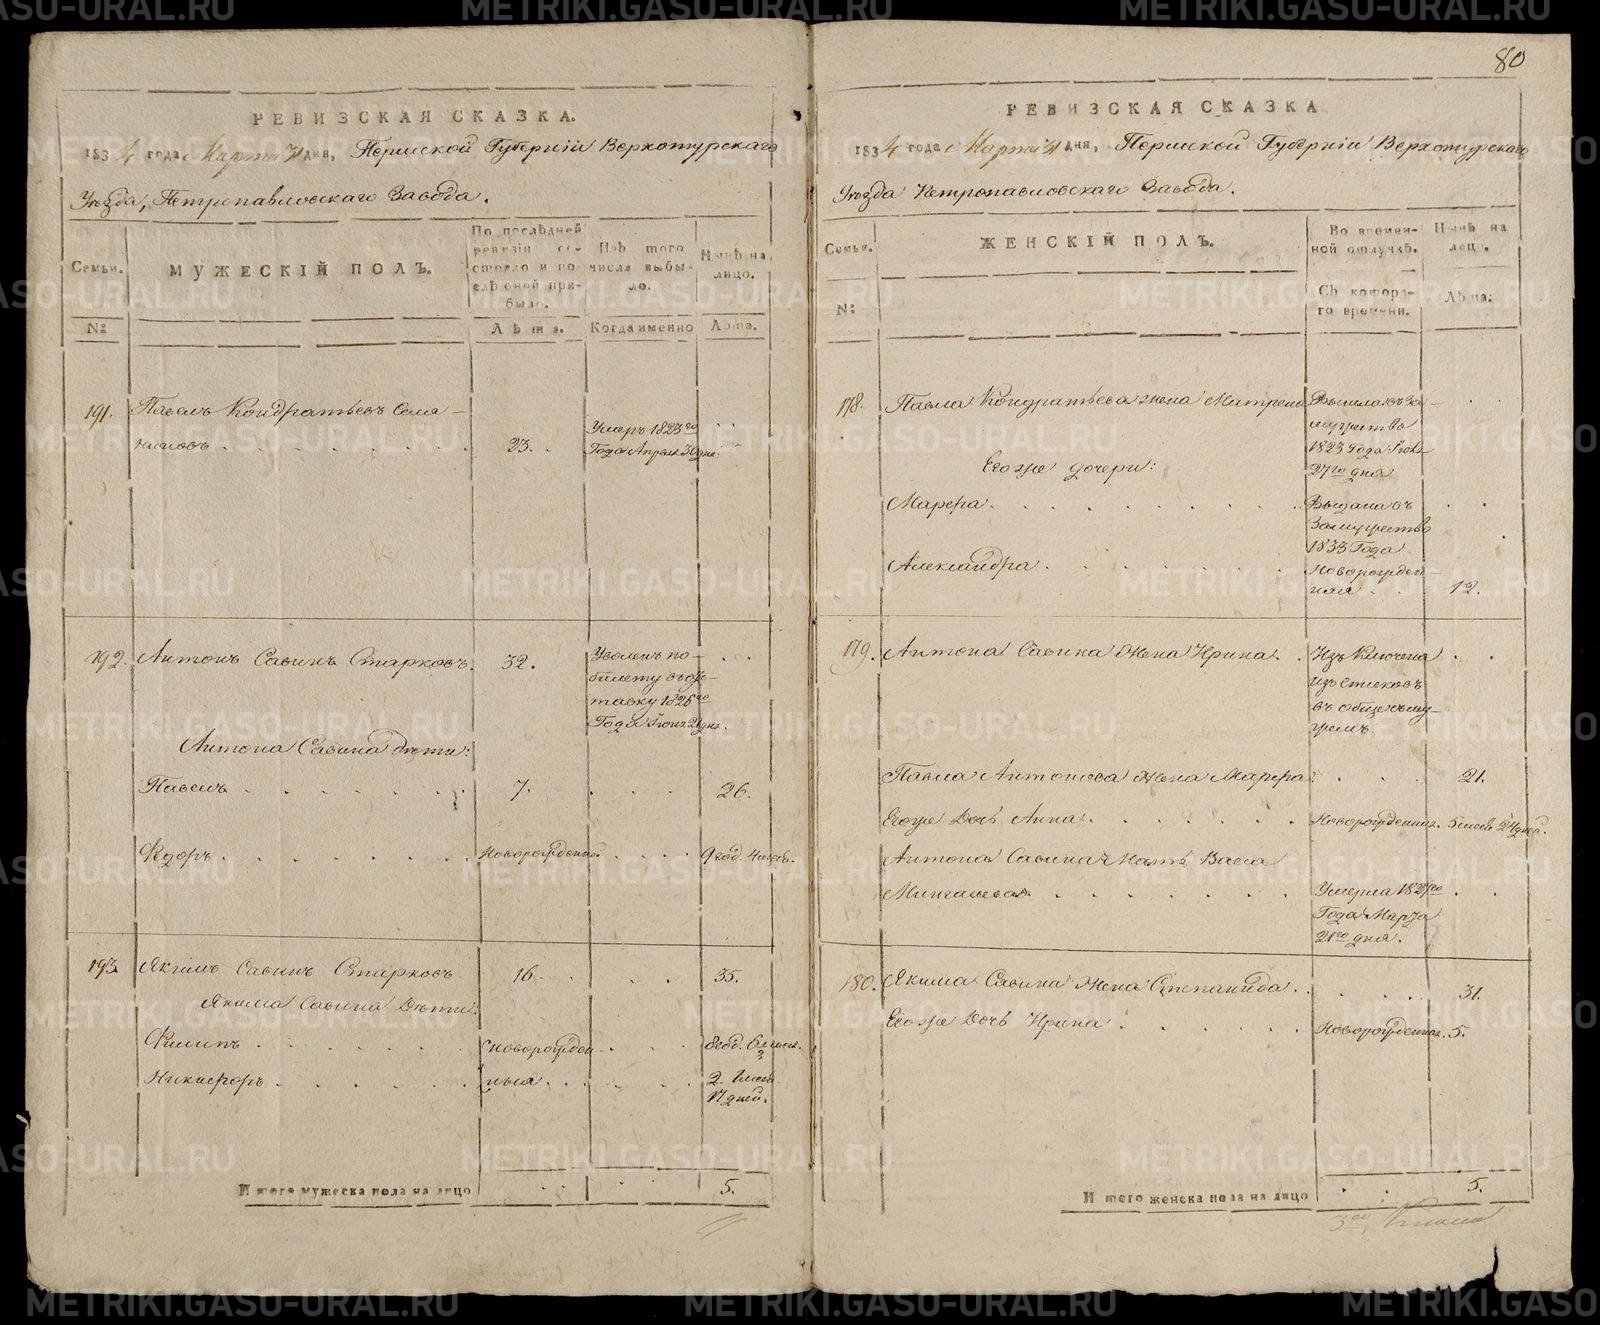 80
РЕВИЗСКАЯ СКАЗКА.
1834 года Марта 31 дня, Пермской Губерніи Верхотурскаго
Уѣзда, Петропавловскаго Завода.
Семьи.
МУЖЕСКІЙ ПОЛЪ.
По послѣдней
ревизіи со-
стояло и по-
слѣ оной при-
было.
Изъ того
числа выбы-
ло.
Нынѣ на
лицо.
№
Лѣта.
Когда именно
Лѣта.
191.
Павелъ Кондратьевъ Сема-
23.
Умеръ 1823го
Года Апреля 30 дня.
192.
Антонъ Савинъ Старковъ.
32.
Уволенъ по
билету въ от-
ставку 1826го
Года Іюня 21 дня.
Антона Савина дѣти:
Павелъ
7.
26.
Ѳедоръ
новорожденный
9 год. 4 месяц.
193.
Якимъ Савинъ Старковъ
16.
35.
Якима Савина Дѣти:
Филипъ
новорожден-
8 год. 6 месяц.
Никифоръ
ныя
2. 1 мес.
17 дней.
Итого мужеска пола на лицо
5.
РЕВИЗСКАЯ СКАЗКА
1834 года Марта 31 дня, Пермской Губерніи Верхотурскаго
Уѣзда Петропавловскаго Завода.
Семьи.
ЖЕНСКІЙ ПОЛЪ.
Во времен-
ной отлучкѣ.
Нынѣ на
лицо.
№:
Съ котора-
го времени.
Лѣта:
178.
Павла Кондратьева жена Матрена
Вышла въ за-
мужество
1823 Года Іюля
27го дня
Его же дочери:
Марфа
Выдана въ
Замужество
1833 Года
Александра
новорожден-
ная
12.
179.
Антона Савина Жена Ирина
Изъ Ключена
изъ списковъ
въ общее съ му-
жемъ.
Павла Антонова Жена Марфа
21.
Его же Дочь Анна
Новорожденная. 5 месяц. 24 дней.
Антона Савина Мать Васса
Умерла 1827го
Года Марта
21го дня.
180.
Якима Савина Жена Степанида
31.
Его же Дочь Ирина
Новорожденная. 5.
Итого женска пола на лицо
5.
METRIKI.GASO-URAL.RU